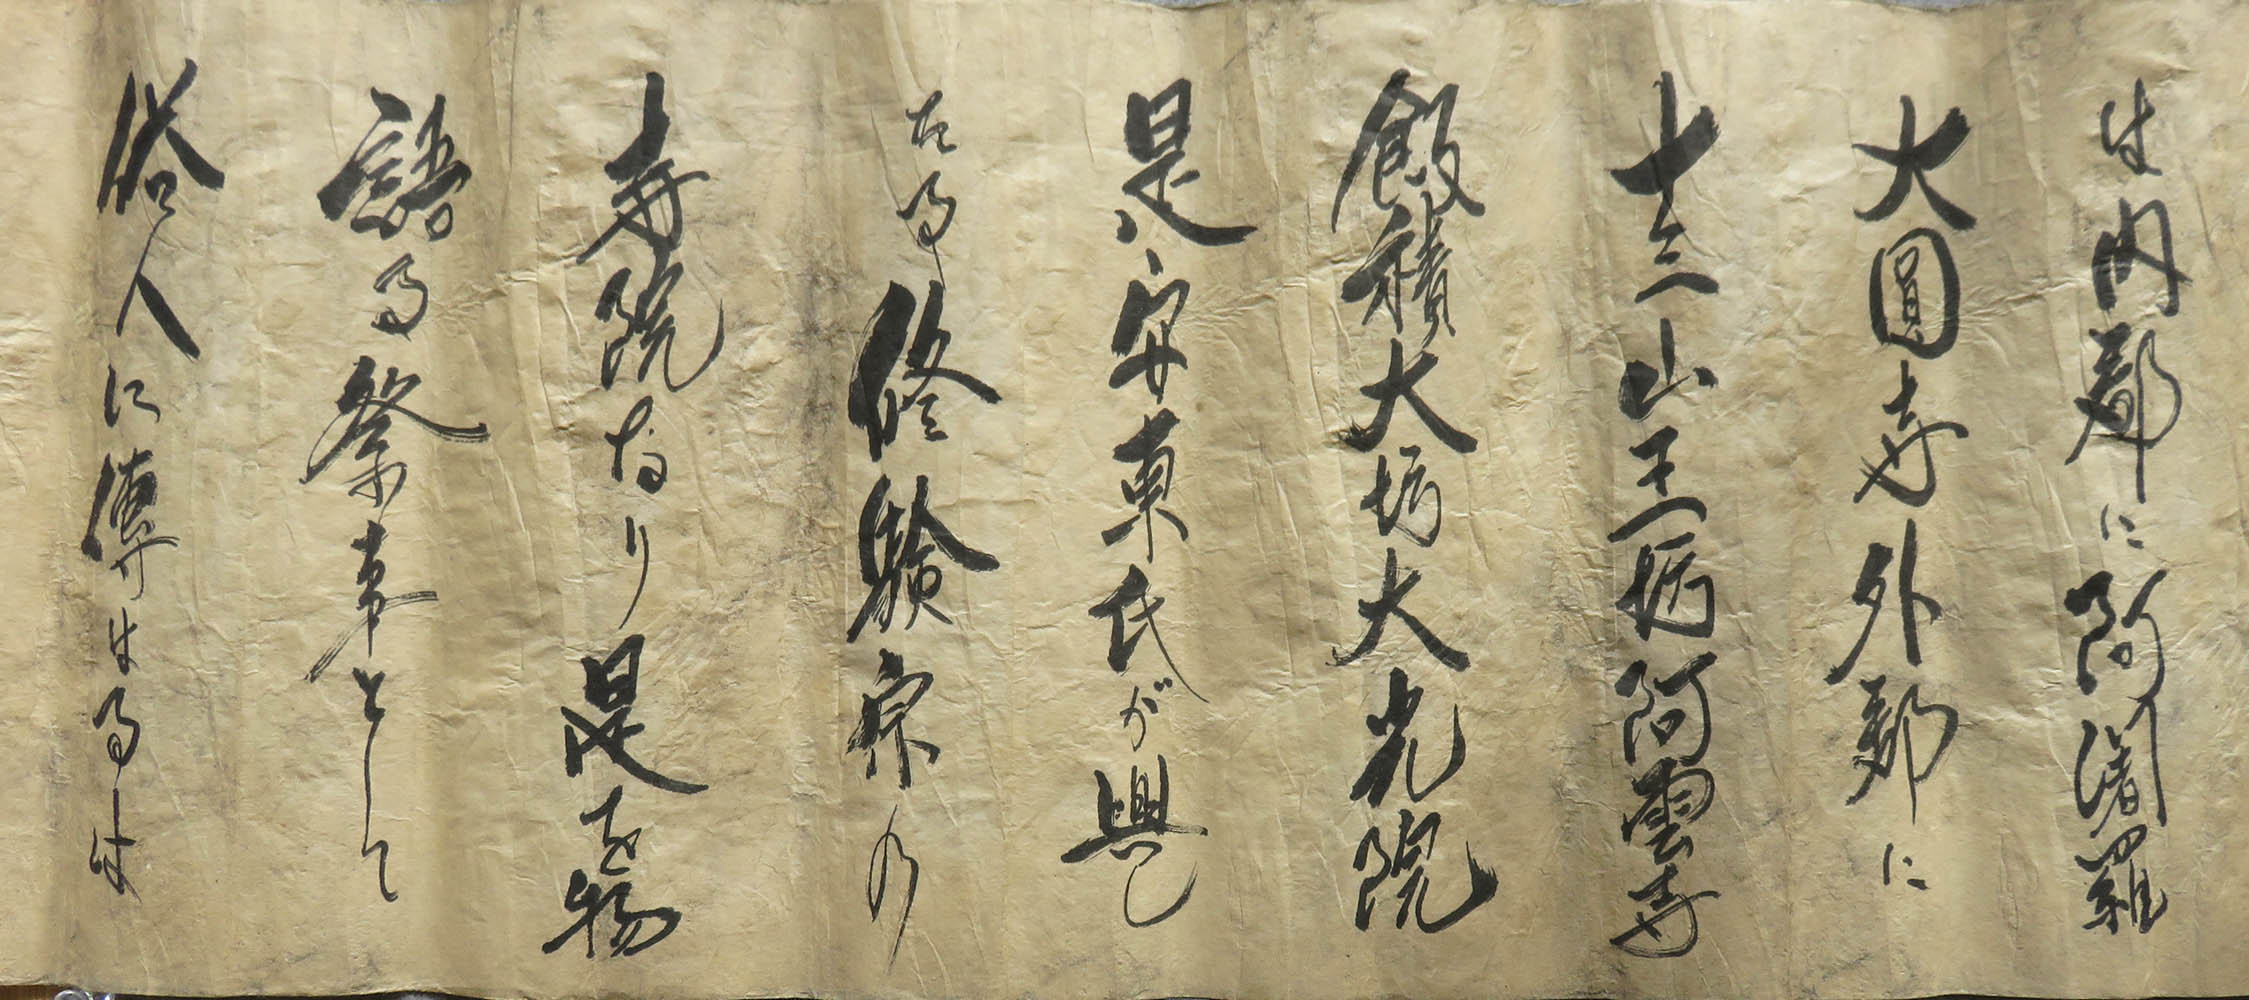 は内郡に阿闍羅
大圓寺外郡に
十三山王坊阿雲寺
飯積大坊大光院
是安東氏が興し
たる修験宗の
寺院なり是を物
語る祭事として
俗人に傳はるは